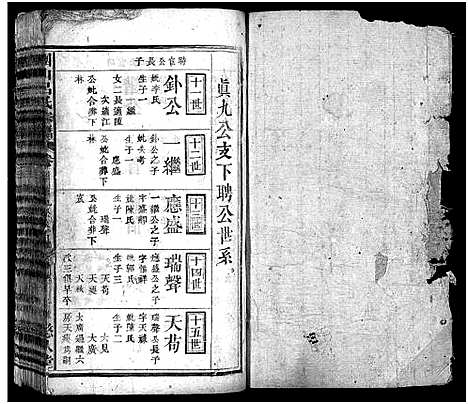 眞九公支下聘公世系
聘官公長子
十一世
釙公
妣李氏
生子一
女二長適陳
次適江
公妣合葬下
林
十二世
一繼
釙公之子
妣失考
生子一
應盛
公妣合葬下
林
十三世
應盛
一繼公之子
字盛郎
妣陳氏
生子一
瑞聲
公妣合葬下
十四世
瑞聲
應盛公之子
字佳祥
妣郭氏
生子三
天苟
天應
天
次三俱早卒
十五世
天苟
瑞聲公長子
字天
妣陳氏
生子二
大見
大廣
大廣過繼六
房天為嗣